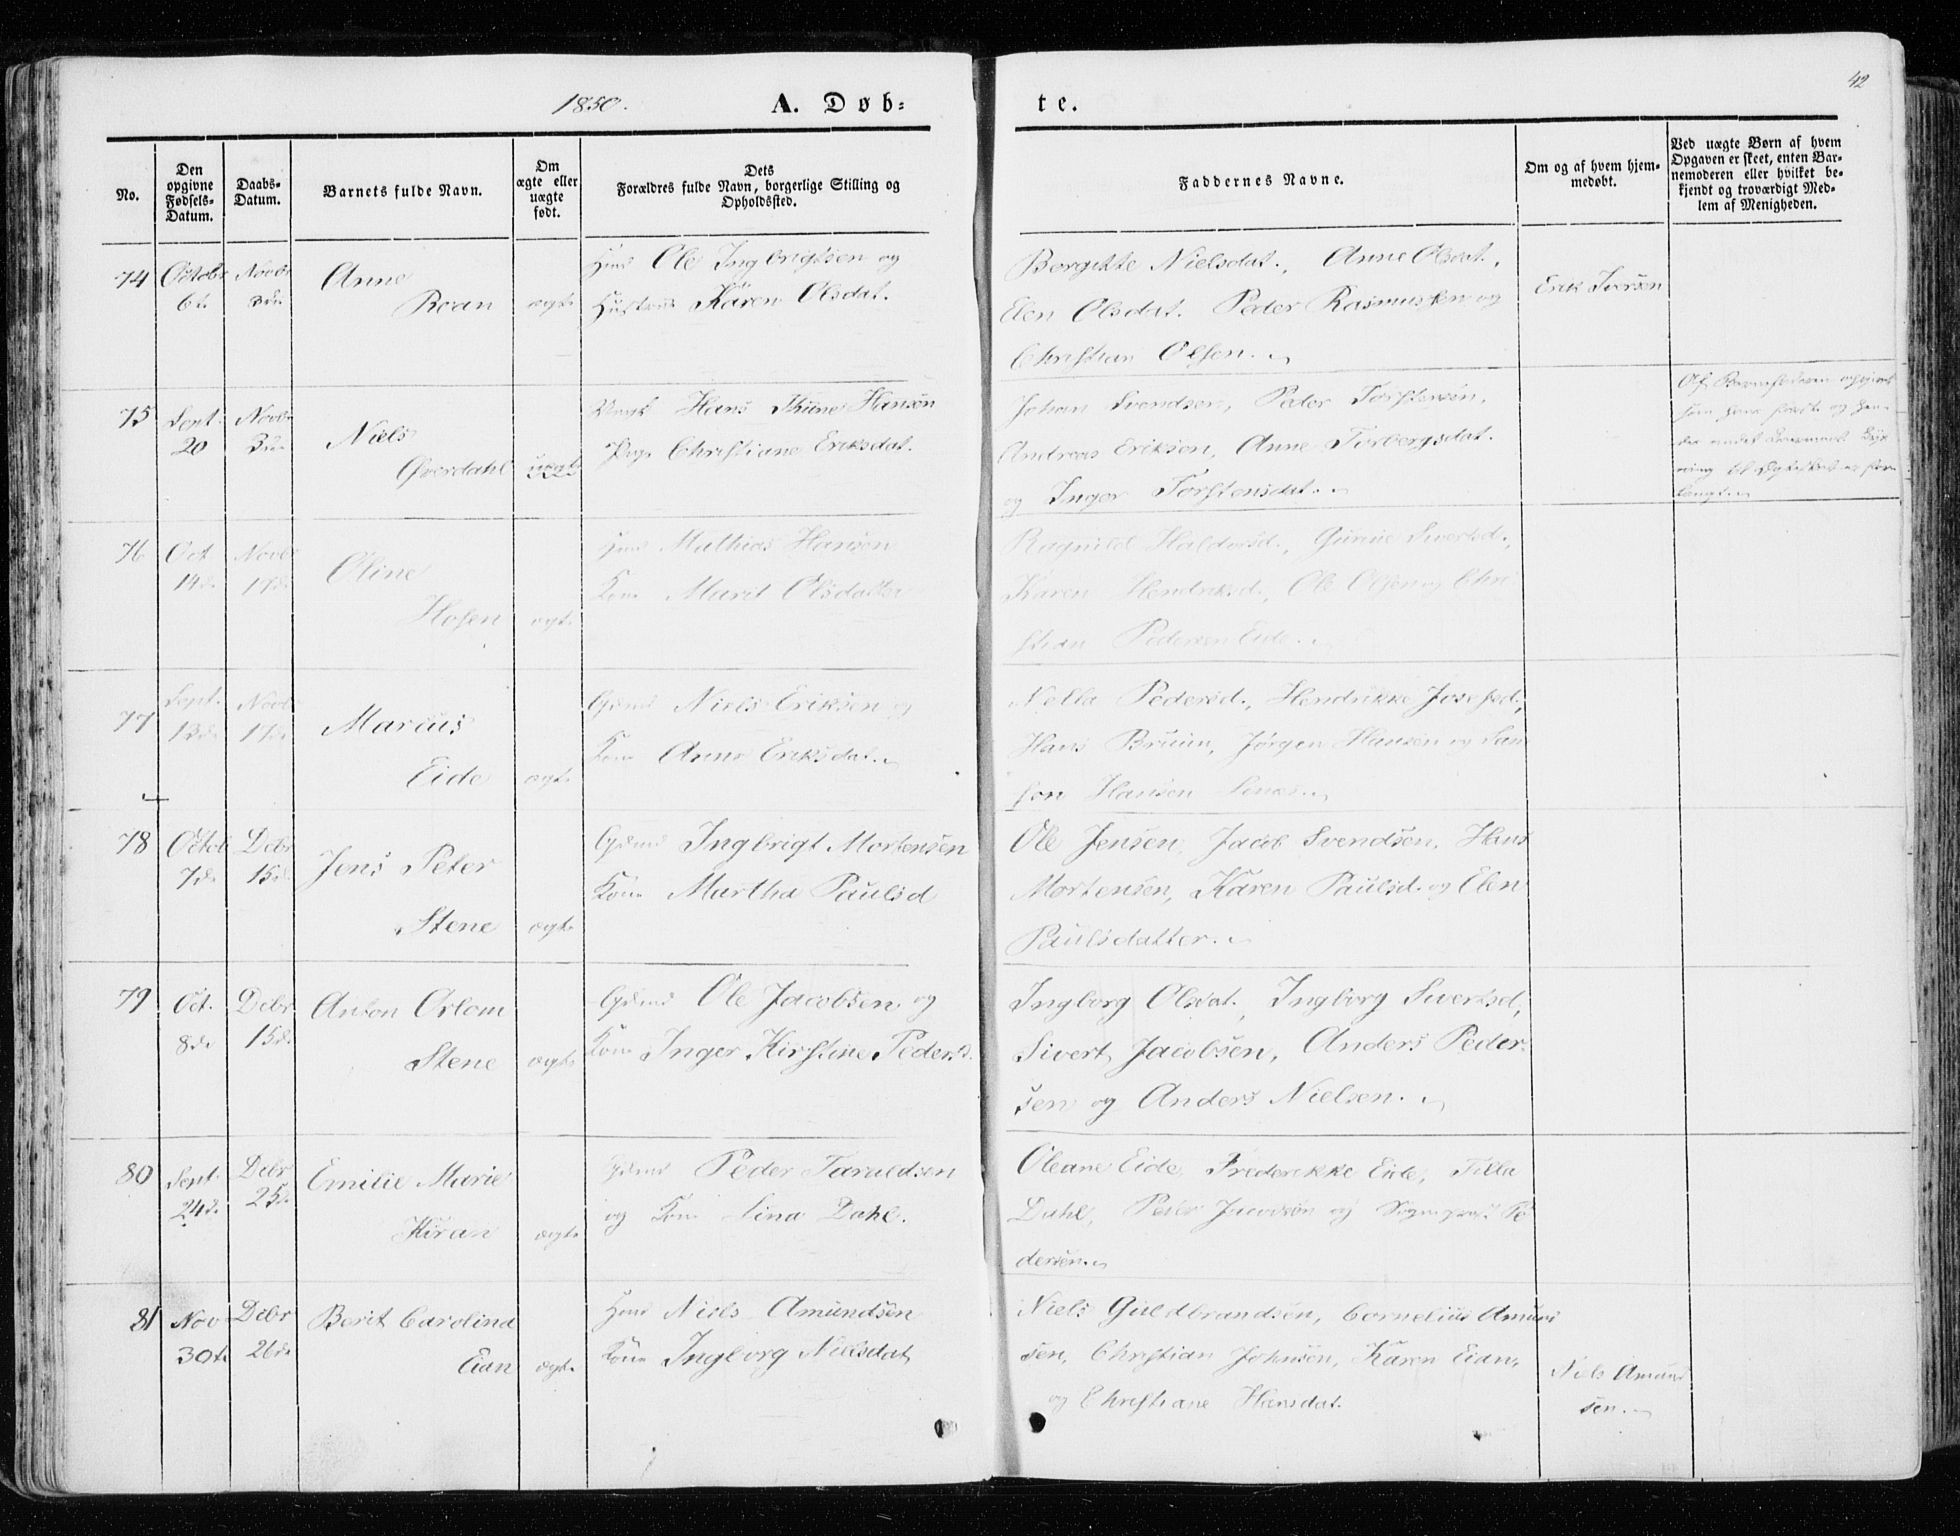 1850.
A. Døb=
te.
42
No.
Den opgivne Fødsels-Datum.
Daabs-Datum.
Barnets fulde Navn.
Om ægte eller uægte født.
Dets Forældres fulde Navn, borgerlige Stilling og Opholdssted.
Faddernes Navne.
Om og af hvem hjemmedøbt.
Ved uægte Børn af hvem Opgaven er skeet, enten Barnemoderen eller hvilket bekjendt og troværdigt Medlem af Menigheden.
74
Octobr
6te
Novbr
3die
Anne
Roan
ægte
Huusd Ole Ingbrigtsen og
Hustrue Karen Olsdat.
Bergitte Nielsdat., Anne Olsdat.,
Elen Olsdat. Peder Rasmussen og
Christian Olsen.
Erik Iversen
75
Sept.
20
Novbr
3die
Niels
Øverdahl
uægte
Hans Thune Hansen
Pige Christiane Eriksdat.
Johan Svendsen, Peder Torstensen,
Andreas Eriksen, Anne Torbergsdat.
og Inger Torstensdat.
76
Oct
14de
Novbr
17de
Oline
Hofen
ægte
Mathias Hansen
Kone Marit Olsdatter
Ragnild Haldorsd., Gurine Sivertsd.,
Karen Hendriksd., Ole Olsen og Chri
stian Pedersen Eide.
77
Sept.
13de
Novbr
17de
Marcus
Eide
ægte
Gdmd Niels Eriksen og
Kone Anne Eriksdat.
Nella Pedersd., Hendrikke Josefsd.,
Hans Bruun, Jørgen Hansen og
Hansen
78
Octob
7de
Debr
15de
Jens Peter
Stene
ægte
Gdmd Ingbrigt Mortensen
Kone Martha Paulsd
Ole Jensen, Jacob Svendsen, Hans
Mortensen, Karen Paulsd. og Elen
Paulsdatter.
79
Oct.
8de
Debr
15de
Anton Orlom
Stene
ægte
Gdmd Ole Jacobsen og
Kone Inger Kirstine Pedersd.
Ingborg Olsdat., Ingborg Sivertsd,
Sivert Jacobsen, Anders Peder-
sen og Anders Nielsen.
80
Sept.
24de
Debr
25de
Emilie Marie
Kiran
ægte
Gdmd Peder Taraldsen
og Kone Sina Dahl.
Oleane Eide, Frederikke Eide, Tilla
Dahl, Peder Jacobsen og Sognepræst Pe
dersen.
81
Nov
30te
Debr
26de
Berit Carolina
Eian
ægte
Huusd Niels Amundsen
Kone Ingborg Nielsdat
Niels Guldbrandsen, Cornelius Amund
sen, Christian Johnsen, Karen Eian,
og Christiane Hansdat.
Niels Amund
sen.